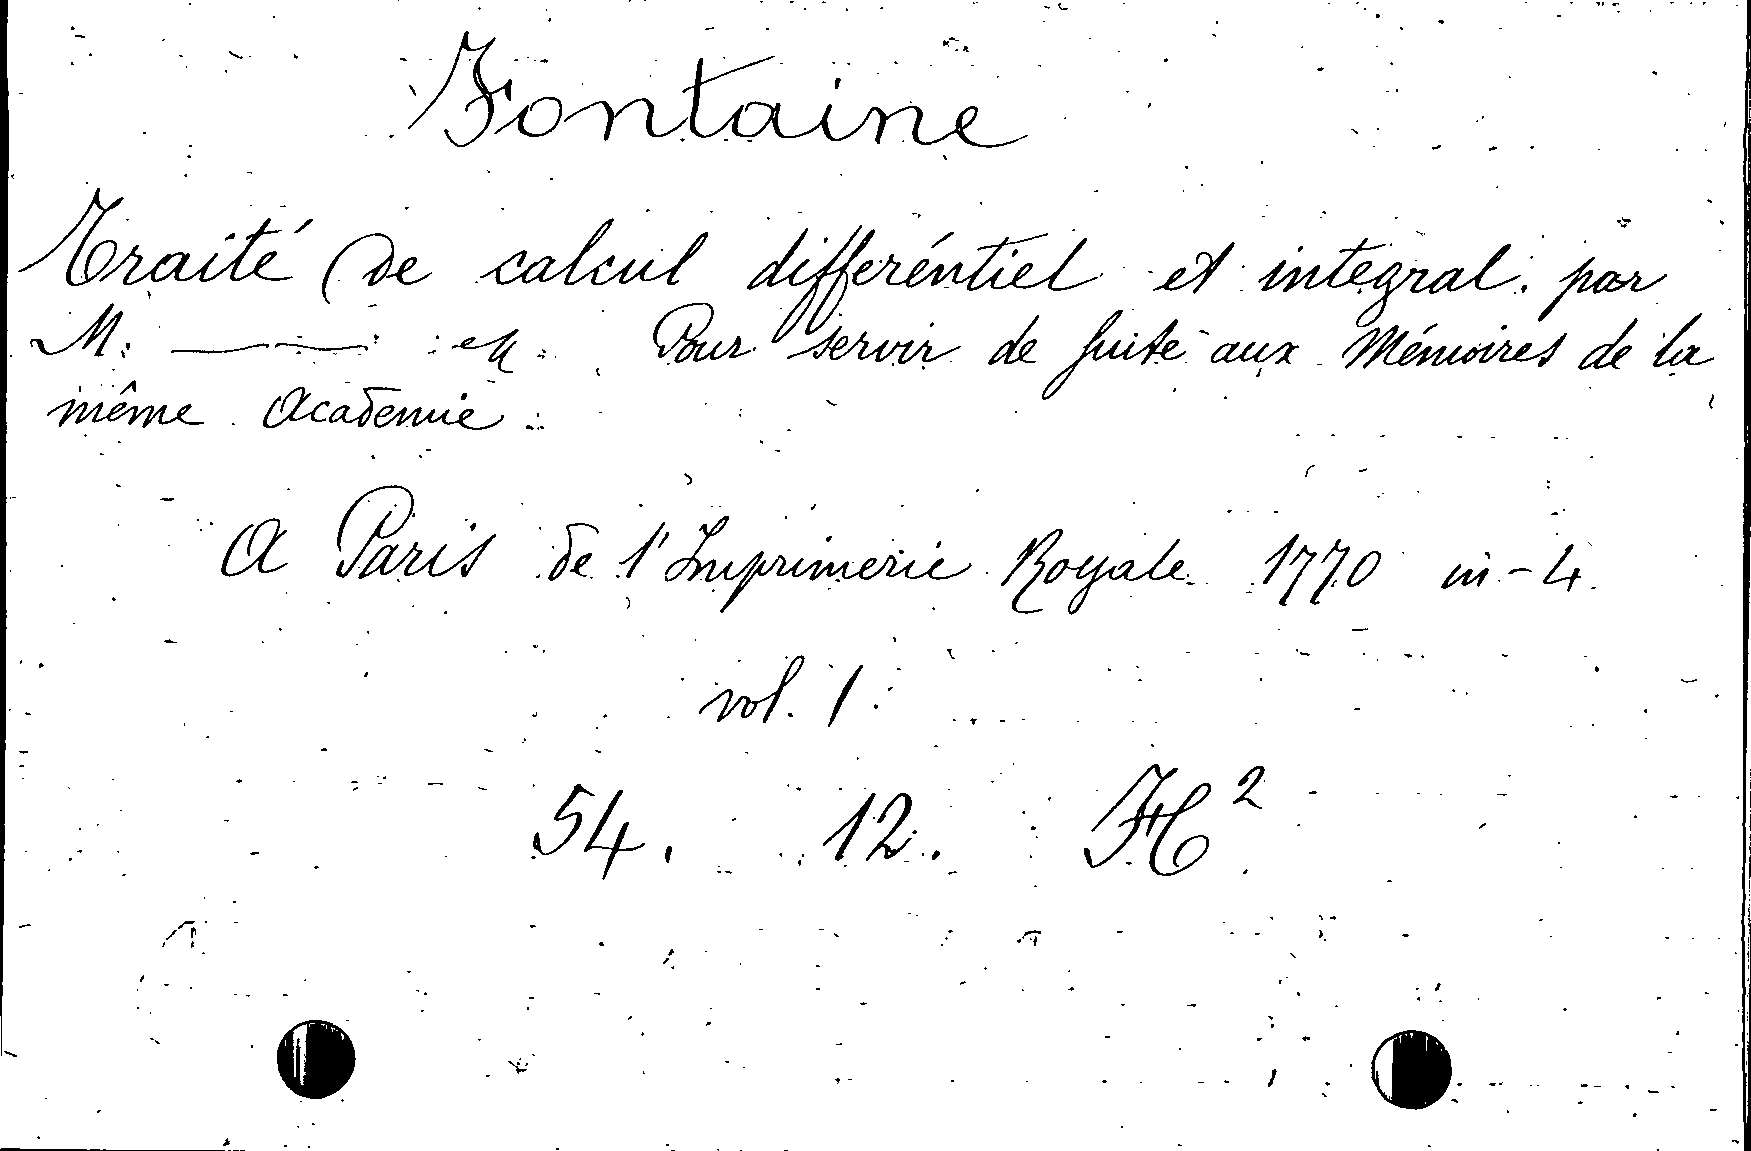 Fontaine
Traité de calcul différéntiel et integral. par
M. ——— Pour servir de suite aux Mémoires de la
même Academie.
A Paris de l'Imprimerie Royale 1770 in-4
vol. 1.
54. 12. H²